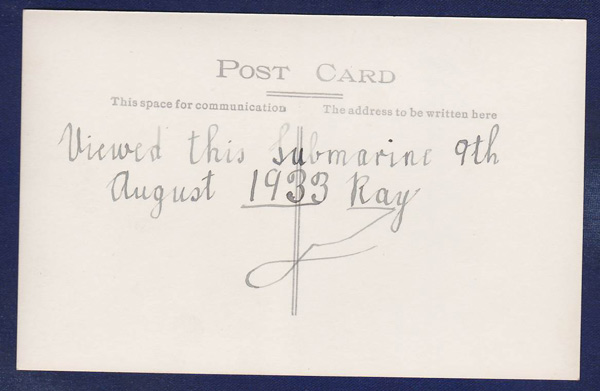 POST CARD
This space for communication The address to be written here
Viewed this Submarine 9th
August 1933 Ray